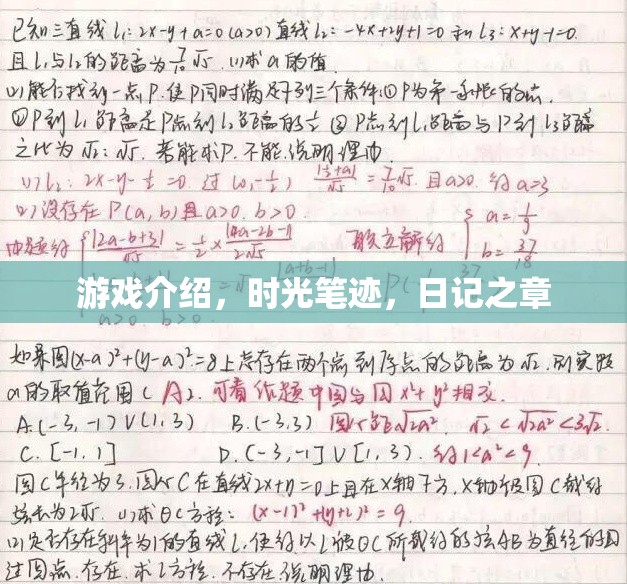 已知三直线l₁: 2x-y+a=0(a>0)直线l₂: -4x+2y+1=0和l₃: x+y-1=0.
且l₁与l₂的距离为7/10√5. (1)求a的值.
(2)能否找到一点P.使P同时满足下列三个条件①P为第一象限的点.
②P到l₁的距离是P点到l₂距离的½ ③P点到l₁距离与P到l₃的距离
之比为√2:√5. 若能求P.不能.说明理由.
(1) l₂: 2x-y-½=0 过(0,-½) |½+a|/√5=7/10√5. 且a>0. 得a=3
(2)设存在P(a,b)且a>0.b>0
由题得 |2a-b+3|/√5=½×|4a-2b-1|/2√5 联立解得 a=1/9
b=37/18
游戏介绍，时光笔迹，日记之章
a>0. b>0
如果圆(x-a)²+(y-a)²=8上总存在两个点到原点的距离为√2.则实数
a的取值范围( A ). 可看作题中圆与圆x²+y²相交.
A.(-3,-1)∪(1,3) B.(-3,3) 圆心距√2a² √2<√2a²<3√2.
C.[-1,1] D.(-3,-1]∪[1,3). 得1<a²<9.
圆C半径为3.圆心C在直线2x+y=0上且在x轴下方.x轴被圆C截得
弦长为2√5. (1)求⊙C方程: (x-1)²+(y+2)²=9.
(2)是否存在斜率为1的直线l.使得以l被⊙C所截得的弦AB为直径的圆
过圆点.存在.求l方程.不存在.说明理由.